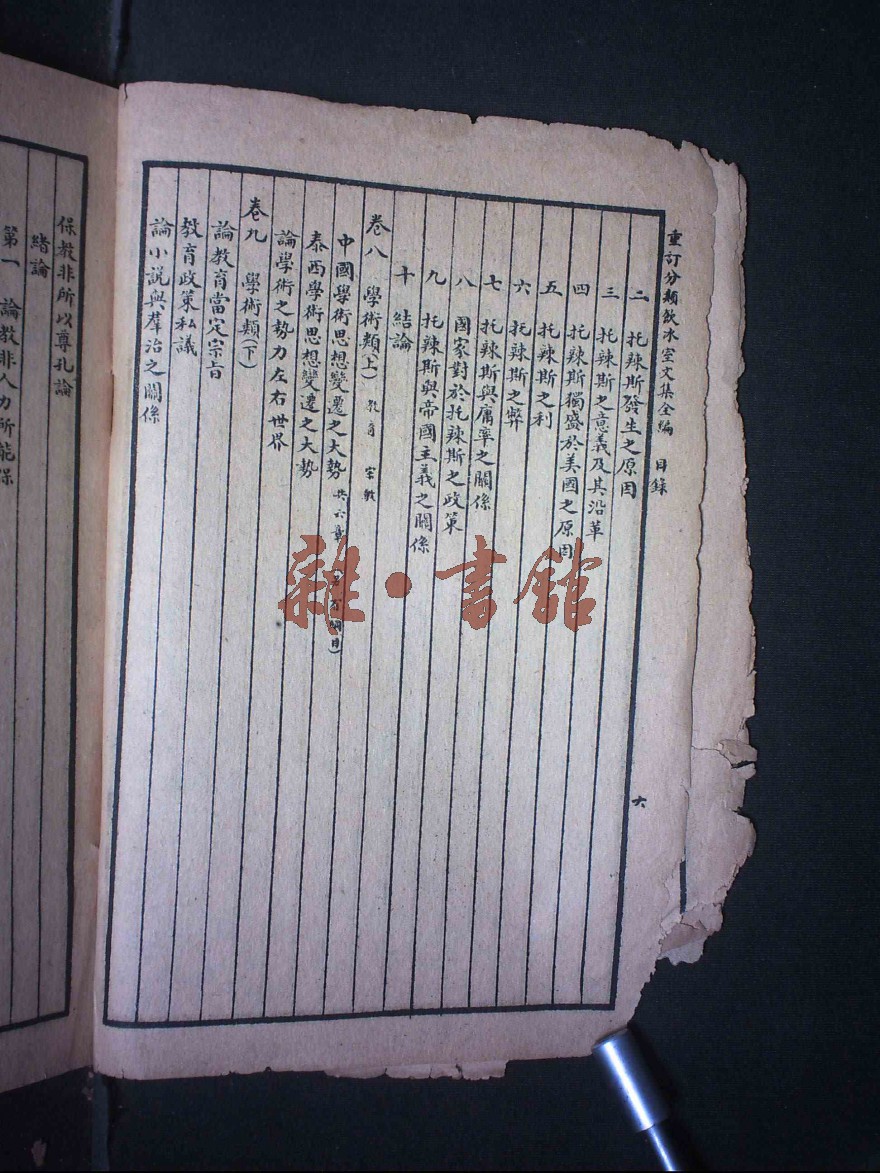 重訂分類飲冰室文集全編 目錄 六
二 托辣斯發生之原因
三 托辣斯之意義及其沿革
四 托辣斯獨盛於美國之原因
五 托辣斯之利
六 托辣斯之弊
七 托辣斯與庸率之關係
八 國家對於托辣斯之政策
九 托辣斯與帝國主義之關係
十 結論
卷八 學術類(上) 教育 宗教
中國學術思想變遷之大勢 共六章
泰西學術思想變遷之大勢
論學術之勢力左右世界
卷九 學術類(下)
論教育當定宗旨
教育政策私議
論小説與羣治之關係
保教非所以尊孔論
緒論
第一 論教非人力所能保
雜·書館